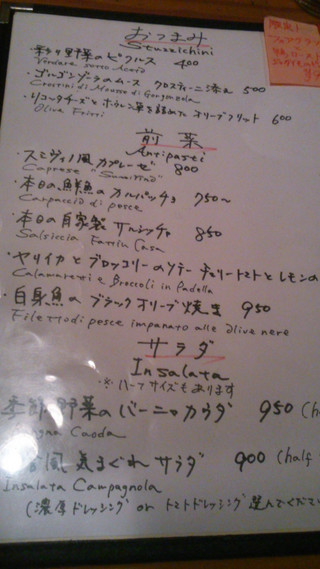 おつまみ
Stuzzichini
・彩り野菜のピクルス 400
Verdure sotto Aceto
・ゴルゴンゾーラのムース クロスティーニ添え 500
Crostini di Mousse di Gorgonzola
・リコッタチーズとホウレン草を詰めた オリーブフリット 600
Olive Fritti
前菜
Antipasti
・スミヴィノ風 カプレーゼ 800
Caprese "SumiVino"
・本日の鮮魚の カルパッチョ 750〜
Carpaccio di pesce
・本日の自家製 サルシッチャ 850
Salsiccia Fatta in Casa
・ヤリイカとブロッコリーのソテー チェリートマトとレモンの
Calamaretti e Broccoli in Padella
・白身魚の ブラックオリーブ焼き 950
Filetto di pesce impanato alle olive nere
サラダ
Insalata
※ハーフサイズもあります
季節野菜の バーニャカウダ 950 (ha
Caoda
風 気まぐれ サラダ 900 (half
Insalata Campagnola
(濃厚ドレッシング or トマトドレッシング 選んでくださ